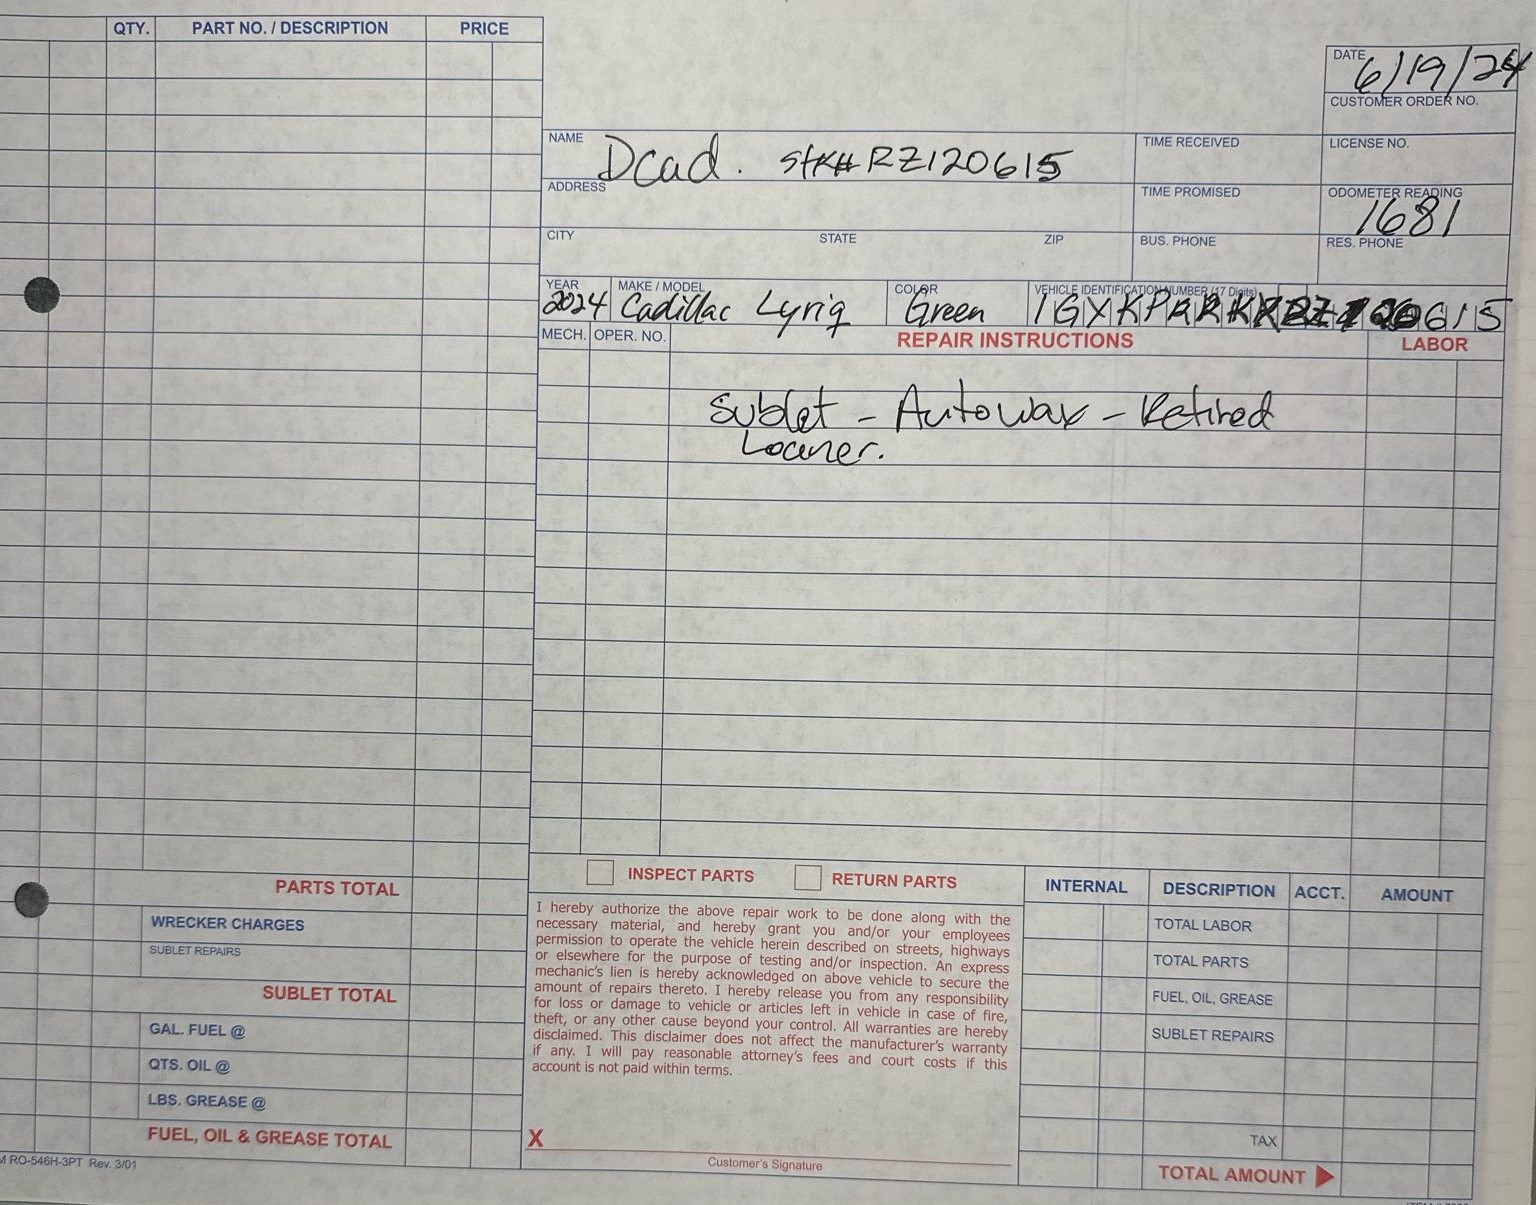 QTY. PART NO. / DESCRIPTION PRICE
DATE 6/19/24
CUSTOMER ORDER NO.
NAME Dcad. Stk# RZ120615
TIME RECEIVED
LICENSE NO.
ADDRESS
TIME PROMISED
ODOMETER READING
1681
CITY STATE ZIP
BUS. PHONE
RES. PHONE
YEAR MAKE / MODEL COLOR VEHICLE IDENTIFICATION NUMBER (17 Digits)
2024 Cadillac Lyriq Green
MECH. OPER. NO. REPAIR INSTRUCTIONS LABOR
Sublet - Autowax - Retired
Loaner.
PARTS TOTAL
WRECKER CHARGES
SUBLET REPAIRS
SUBLET TOTAL
GAL. FUEL @
QTS. OIL @
LBS. GREASE @
FUEL, OIL & GREASE TOTAL
RO-546H-3PT Rev. 3/01
INSPECT PARTS RETURN PARTS
I hereby authorize the above repair work to be done along with the
necessary material, and hereby grant you and/or your employees
permission to operate the vehicle herein described on streets, highways
or elsewhere for the purpose of testing and/or inspection. An express
mechanic's lien is hereby acknowledged on above vehicle to secure the
amount of repairs thereto. I hereby release you from any responsibility
for loss or damage to vehicle or articles left in vehicle in case of fire,
theft, or any other cause beyond your control. All warranties are hereby
disclaimed. This disclaimer does not affect the manufacturer's warranty
if any. I will pay reasonable attorney's fees and court costs if this
account is not paid within terms.
X
Customer's Signature
INTERNAL DESCRIPTION ACCT. AMOUNT
TOTAL LABOR
TOTAL PARTS
FUEL, OIL, GREASE
SUBLET REPAIRS
TAX
TOTAL AMOUNT